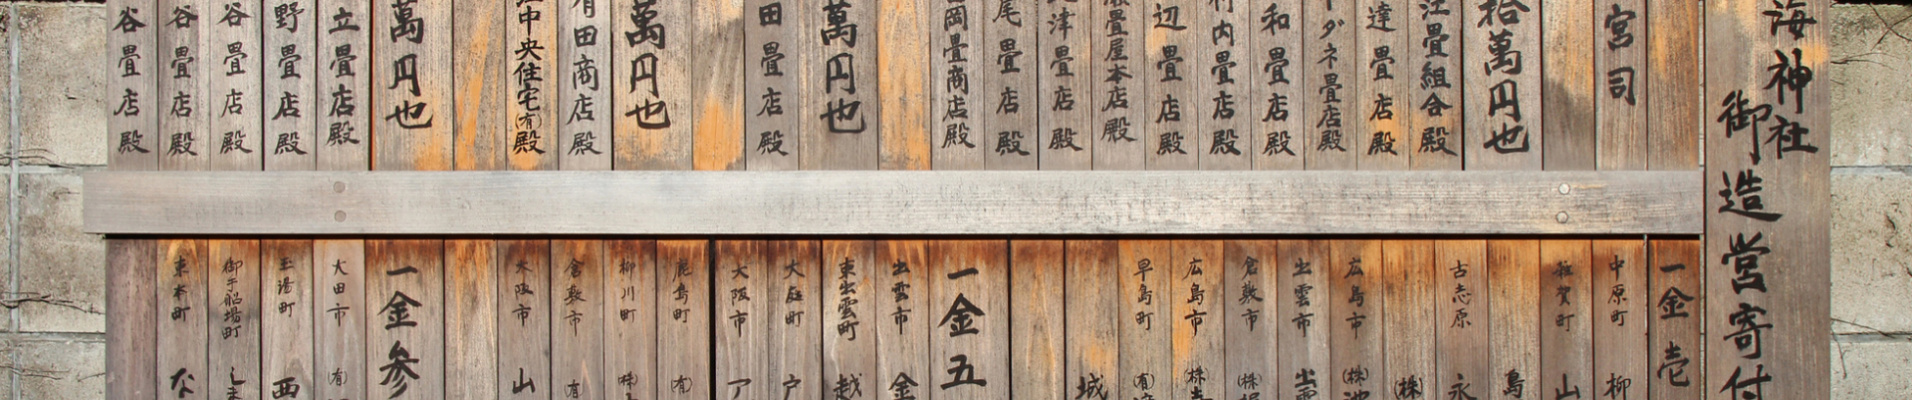 海神社
御造営寄付
宮司
拾萬円也
畳組合殿
達畳店殿
ダネ畳店殿
和畳店殿
村内畳店殿
辺畳店殿
畳屋本店殿
津畳店殿
尾畳店殿
岡畳商店殿
萬円也
田畳店殿
萬円也
有田商店殿
中央住宅(有)殿
萬円也
立畳店殿
野畳店殿
谷畳店殿
谷畳店殿
谷畳店殿
一金壱
中原町 柳
古志原 永
島
(株)
広島市 (株)
出雲市 出雲
倉敷市 (株)
広島市 (株)
早島町 (有)
城
一金五
出雲市 金
東出雲町 越
大庭町 戸
大阪市 ア
鹿島町 (有)
柳川町 (株)
倉敷市 (有)
大阪市 山
一金参
大田市 (有)
玉湯町 西
御手船場町 しま
東本町 な